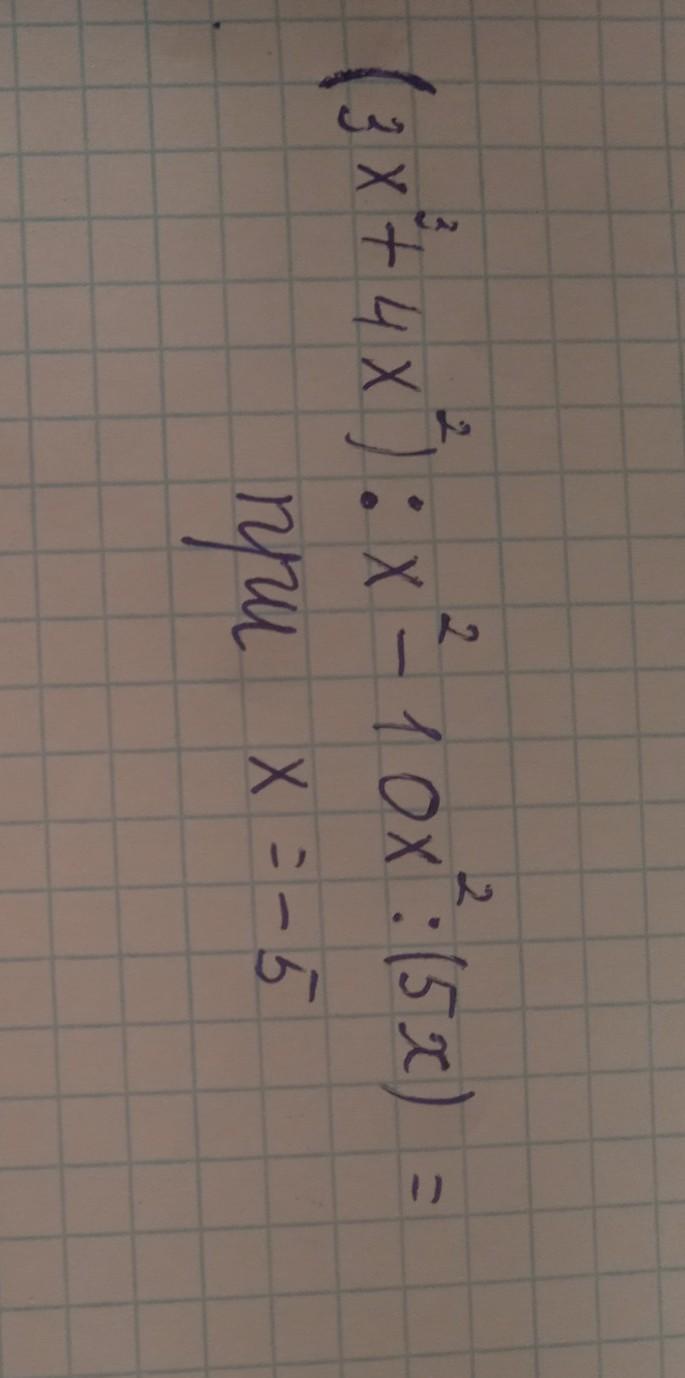 (3x³+4x²):x²-10x²:(5x) =
при x=-5